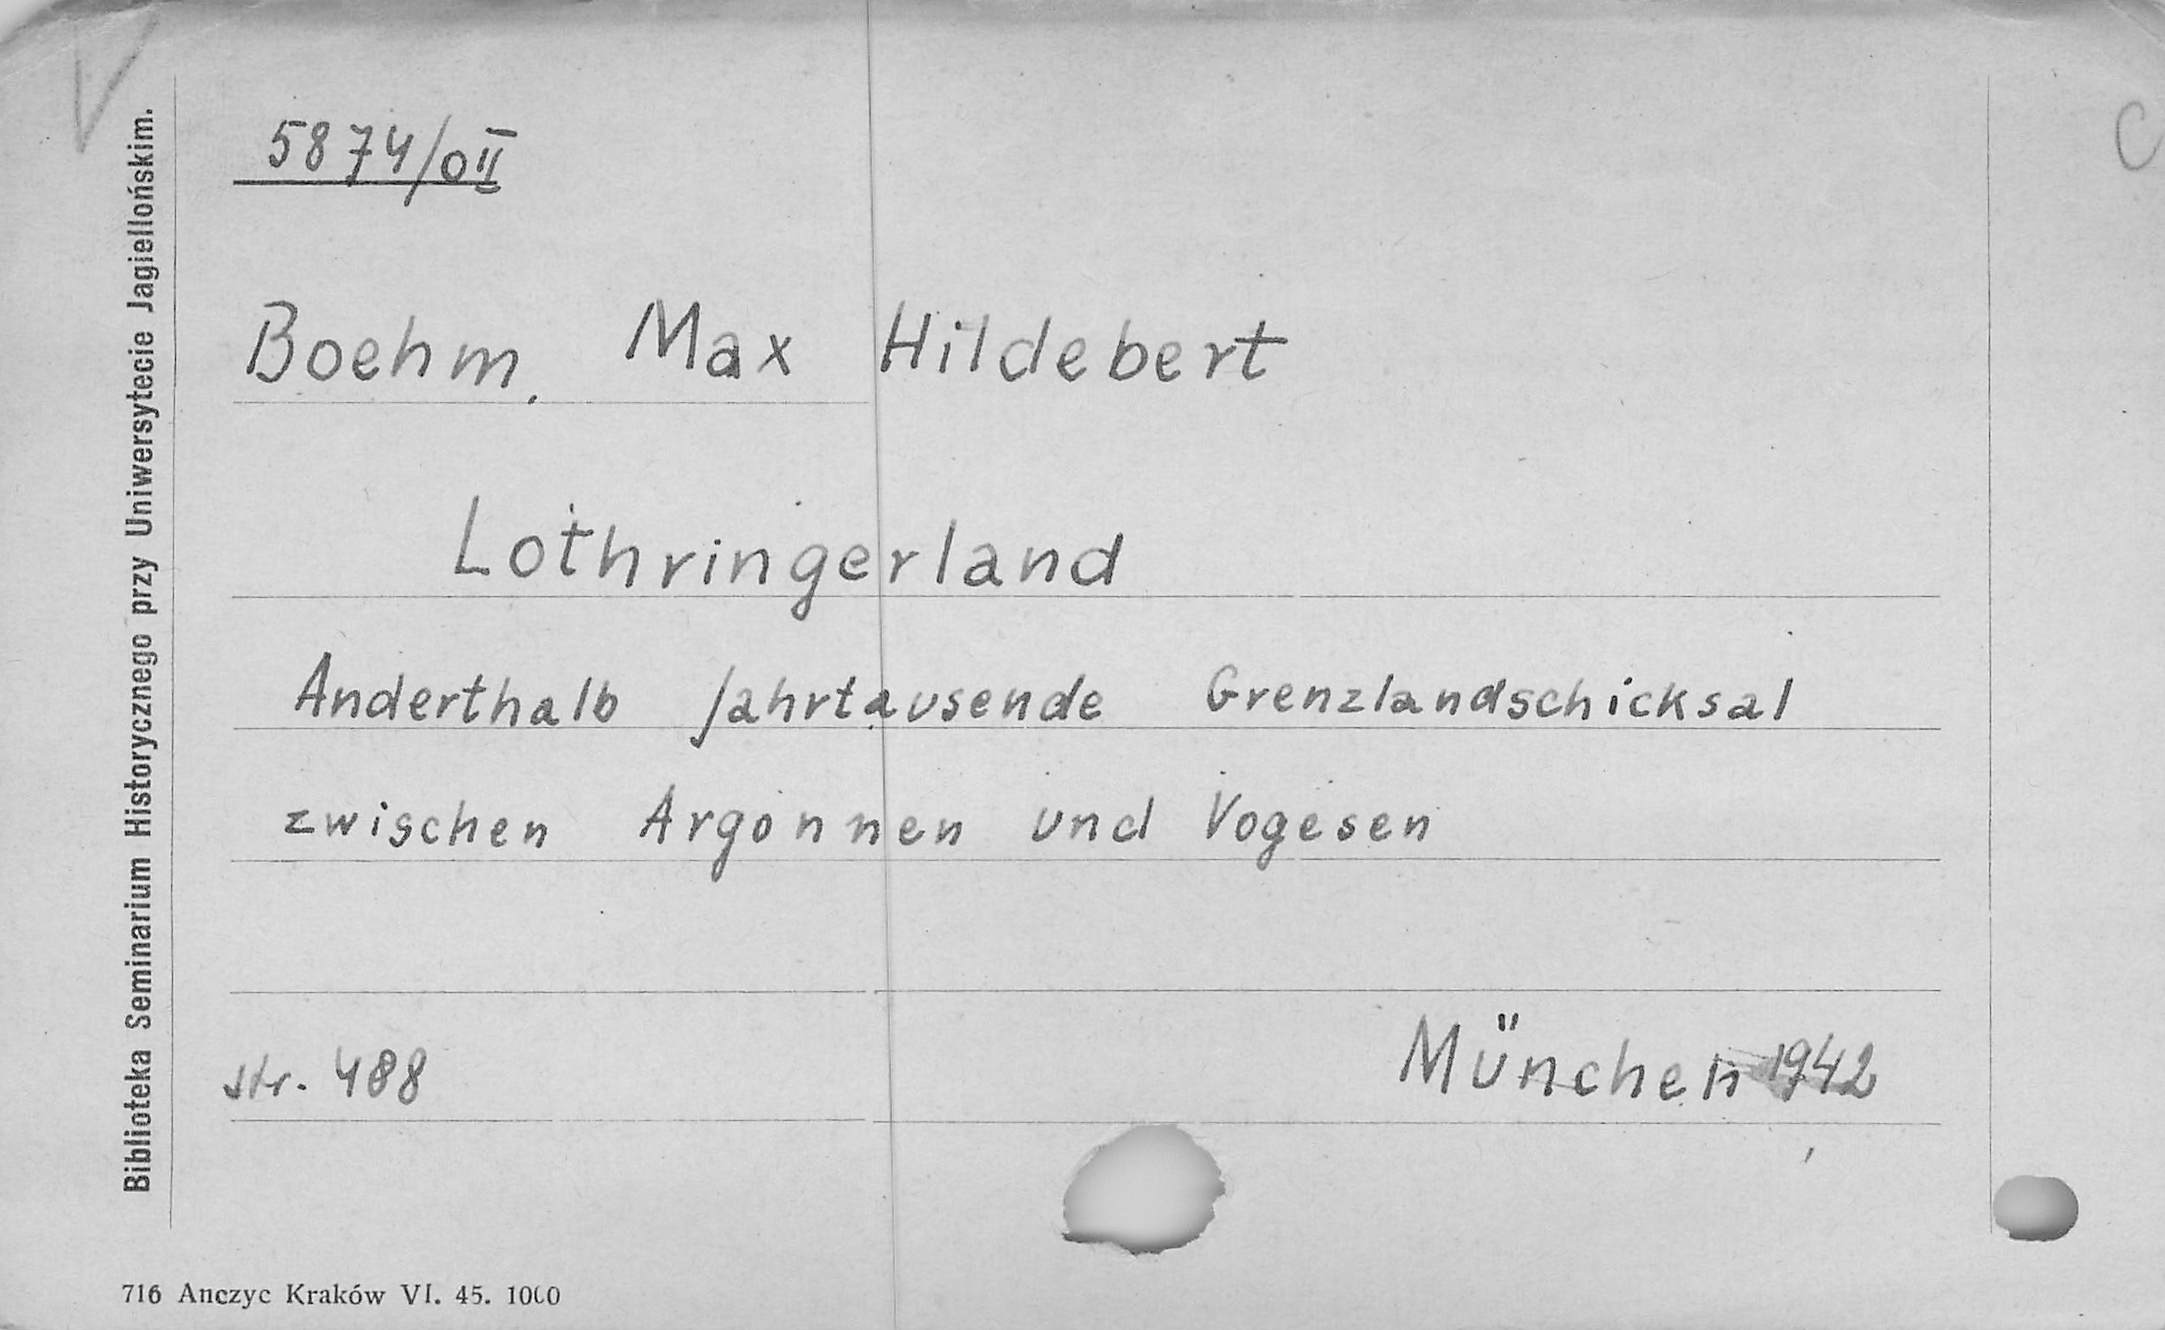 V
C
5874/0II
Boehm, Max Hildebert
Lothringerland
Anderthalb Jahrtausende Grenzlandschicksal
zwischen Argonnen und Vogesen
str. 488
München 1942
Biblioteka Seminarium Historycznego przy Uniwersytecie Jagiellońskim.
716 Anczyc Kraków VI. 45. 1000